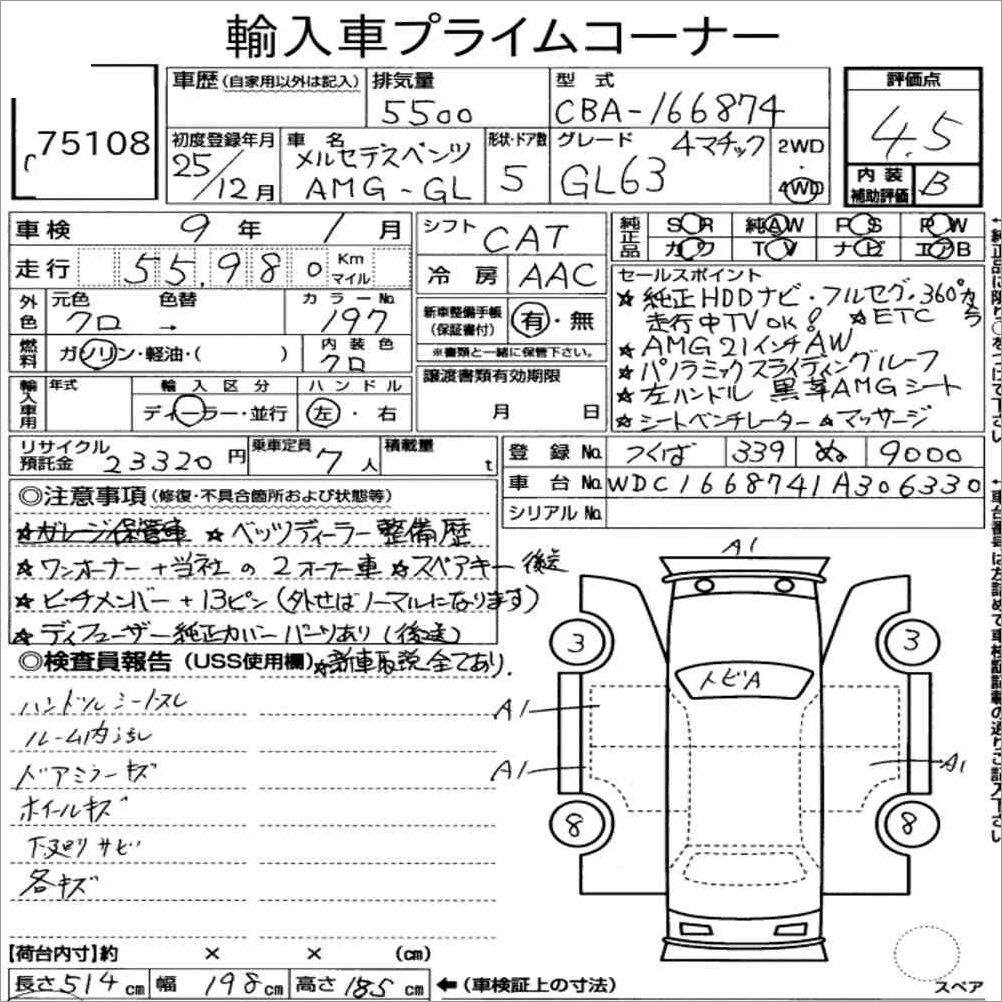 輸入車プライムコーナー
75108
車歴 (自家用以外は記入) 排気量 5500 型式 CBA-166874 評価点 4.5
初度登録年月 25/12月 車名 メルセデスベンツ AMG-GL 形状・ドア数 5 グレード GL63 4マチック 2WD・4WD 内装補助評価 B
車検 9年 1月 シフト CAT 純正品 SR 純AW PS PW
走行 55,980 Km マイル 冷房 AAC カワ TV ナビ エアB
外色 元色 クロ 色替 → カラーNo. 197
燃料 ガソリン・軽油・( ) 内装色 クロ
新車整備手帳 (保証書付) 有・無
※書類と一緒に保管下さい。
輸入車用 年式 輸入区分 ディーラー・並行 ハンドル 左・右
譲渡書類有効期限 月 日
セールスポイント
★純正HDDナビ・フルセグ・360°カメラ
走行中TV OK! ★ETC
★AMG21インチAW
★パノラミックスライディングルーフ
★左ハンドル 黒革AMGシート
★シートベンチレーター ★マッサージ
リサイクル預託金 23320円 乗車定員 7人 積載量 t
登録No. つくば 339 ぬ 9000
車台No. WDC1668741A306330
シリアルNo.
◎注意事項 (修復・不具合箇所および状態等)
★ガレージ保管車 ★ベンツディーラー整備歴
★ワンオーナー+当社の2オーナー車 ★スペアキー後送
★ビーチメンバー+13ピン(外せばノーマルになります)
★ディフューザー純正カバーパーツあり(後送)
◎検査員報告 (USS使用欄) ★新車取説全てあり.
ハンドルシートスレ
ルーム内汚レ
ドアミラーキズ
ホイールキズ
下廻りサビ
各キズ
A1
3 3
トビA
A1
A1 A1
8 8
スペア
【荷台内寸】約 × × (cm)
長さ 514cm 幅 198cm 高さ 185cm ←(車検証上の寸法)